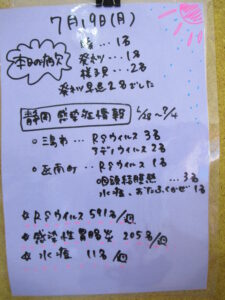 7月19日(月)
本日の病欠
咳 … 1名
発熱 … 1名
様子見 … 2名
発熱早退2名でした
静岡 感染症情報 6/28~7/4
○ 三島市 … RSウイルス 3名
アデノウイルス 2名
○ 函南町 … RSウイルス 1名
咽頭結膜熱 … 3名
水痘、おたふくかぜ 1名
☆ RSウイルス 591名/週
☆ 感染性胃腸炎 205名/週
☆ 水痘 11名/週